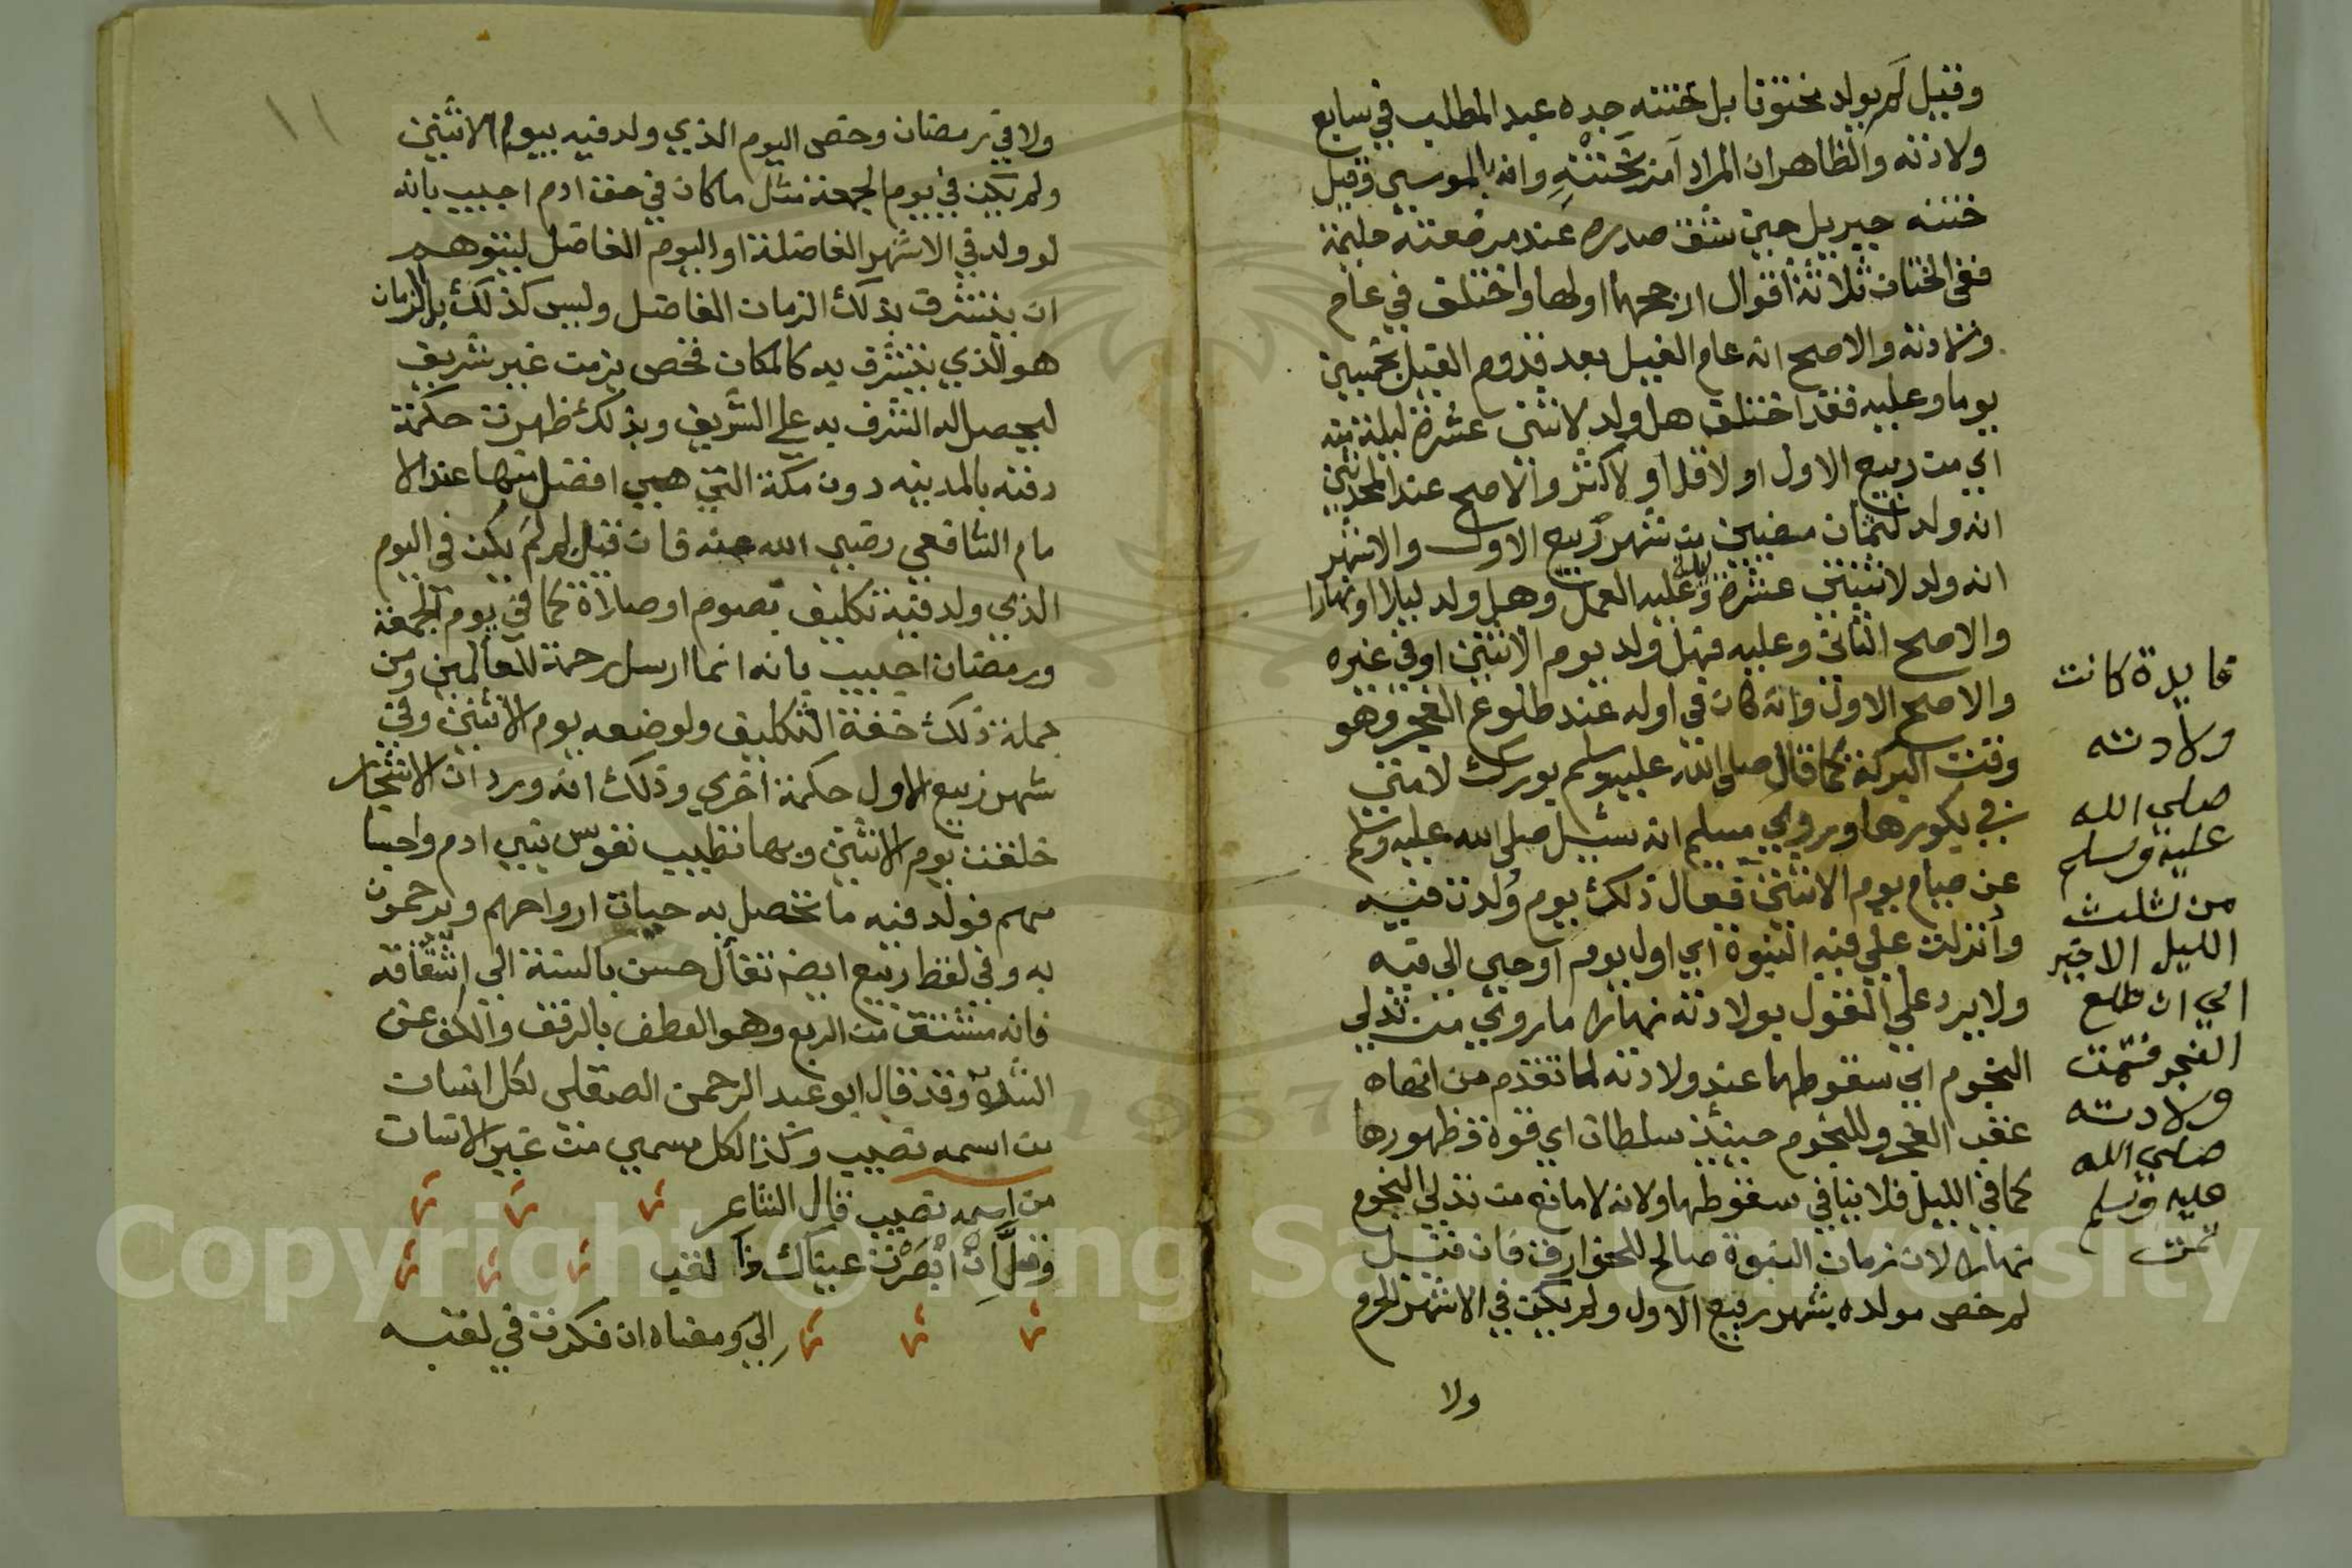 وقيل لم يولد مختونا بل ختنه جده عبد المطلب في سابع
ولادته والظاهر ان المراد آمر بختنه وانه بالموسي وقيل
ختنه جبريل حين شق صدره عند مرضعته حليمة
ففي الختان ثلاثة اقوال ارجحها اولها واختلف في عام
ولادته والاصح انه عام الفيل بعد قدوم الفيل بخمسين
يوما وعليه فقد اختلف هل ولد لاثنتي عشرة ليلة منه
اي من ربيع الاول او لاقل او لاكثر والاصح عند المحدثين
انه ولد لثمان مضين من شهر ربيع الاول والاشهر
انه ولد لاثنتي عشرة ليلة وعليه العمل وهل ولد ليلا او نهارا
والاصح الثاني وعليه فهل ولد يوم الاثنين او في غيره
والاصح الاول وانه كان في اوله عند طلوع الفجر وهو
وقت البركة كما قال صلى الله عليه وسلم بورك لامتي
في بكورها وروي مسلم انه سئل صلى الله عليه وسلم
عن صيام يوم الاثنين فقال ذلك يوم ولدت فيه
وأنزلت علي فيه النبوة اي اول يوم اوحي الي فيه
ولا يرد علي القول بولادته نهارا ما روي من تدلي
النجوم اي سقوطها عند ولادته لما تقدم من انها
عقب الفجر وللنجوم حينئذ سلطان اي قوة فظهورها
كما في الليل فلا ينافي سقوطها ولانه لا مانع من تدلي النجوم
نهارا لان زمان النبوة صالح للخوارق فان قيل
لم خص مولده بشهر ربيع الاول ولم يكن في الاشهر الحرم
ولا
فايدة كانت
ولادته
صلي الله
عليه وسلم
من ثلث
الليل الاخير
الي ان طلع
الفجر فتمت
ولادته
صلي الله
عليه وسلم
تمت
١١
ولا في رمضان وخص اليوم الذي ولد فيه بيوم الاثنين
ولم يكن في يوم الجمعة مثل ما كان في حق ادم اجيب بانه
لو ولد في الاشهر الفاضلة او اليوم الفاضل لتوهم
ان يتشرف بذلك الزمان الفاضل وليس كذلك بل الزمان
هو الذي يتشرف به كالمكان فخص بزمن غير شريف
ليحصل له الشرف به علي الشريف وبذلك ظهرت حكمة
دفنه بالمدينه دون مكة التي هي افضل منها عند الا
مام الشافعي رضي الله عنه فان قيل لم لم يكن في اليوم
الذي ولد فيه تكليف بصوم او صلاة كما في يوم الجمعة
ورمضان اجيب بانه انما ارسل رحمة للعالمين ومن
جملة ذلك خفة التكليف ولوضعه يوم الاثنين وفي
شهر ربيع الاول حكمة اخري وذلك انه ورد ان الاشجار
خلقت يوم الاثنين وبها تطيب نفوس بني ادم واحيا
هم فولد فيه ما تحصل به حيات ارواحهم ويرحمون
به وفي لفظ ربيع ايضا تفأل حسن بالسنة الي اشتقاقه
فانه مشتق من الربع وهو العطف بالرفق والكف عن
وقد قال ابو عبد الرحمن الصقلي لكل انسان
من اسمه نصيب وكذا لكل مسمي من غير الانسان
من اسمه نصيب قال الشاعر
وقل ان ابصرت عيناك ذا لقب
الي ومعناه ان فكرت في لقبه
Copyright © King Saud University
1957